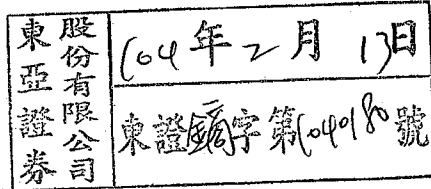 東亞證券
股份有限公司
104年2月13日
東證鏑字第1040180號